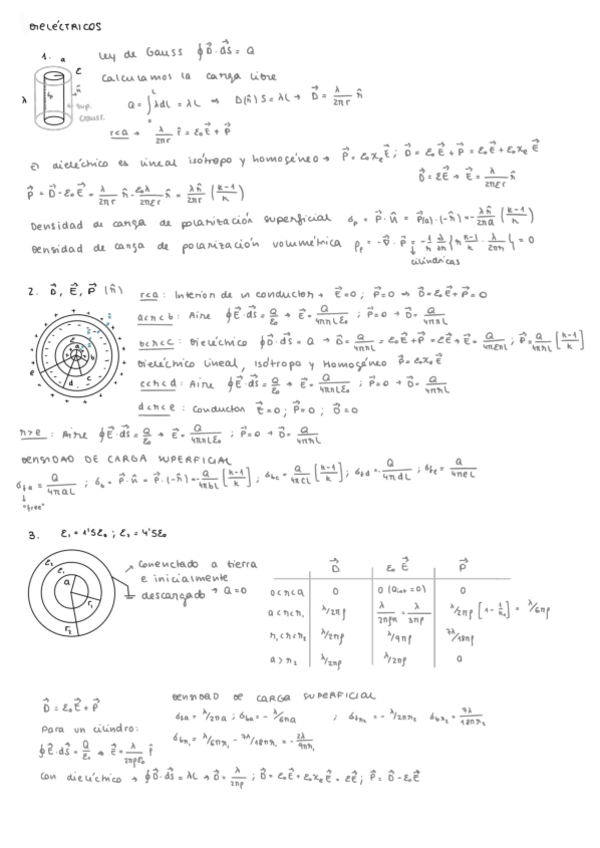 DIELÉCTRICOS
1. a ε
Ley de Gauss ∮D⃗·dS⃗ = Q
Calculamos la carga libre
λ
Q = ∫λdL = λL → D(n̂)S = λL → D⃗ = λ/2πr n̂
r<a → λ/2πr r̂ = ε₀E⃗ + P⃗
El dieléctrico es lineal isótropo y homogéneo → P⃗ = ε₀χₑE⃗ ; D⃗ = ε₀E⃗ + P⃗ = ε₀E⃗ + ε₀χₑE⃗
D⃗ = εE⃗ → E⃗ = λ/2πεr n̂
P⃗ = D⃗ - ε₀E⃗ = λ/2πr n̂ - ε₀λ/2πεr n̂ = λn̂/2πr (k-1/k)
Densidad de carga de polarización superficial σₚ = P⃗·n̂ = P(a)·(-n̂) = -λn̂/2πa (k-1/k)
Densidad de carga de polarización volumétrica
cilíndricas
2. D⃗, E⃗, P⃗ (n̂)
r<a : Interior de un conductor → E⃗=0 ; P⃗=0 → D⃗=ε₀E⃗+P⃗=0
a<r<b : Aire ∮E⃗·dS⃗ = Q/ε₀ → E⃗ = Q/4πrLε₀ ; P⃗=0 → D⃗ = Q/4πrL
b<r<c : Dieléctrico ∮D⃗·dS⃗ = Q → D⃗ = Q/4πrL = ε₀E⃗+P⃗ = εE⃗ → E⃗ = Q/4πεrL ; P⃗ = Q/4πrL [k-1/k]
Dieléctrico Lineal, Isótropo y Homogéneo P⃗ = ε₀χₑE⃗
c<r<d : Aire ∮E⃗·dS⃗ = Q/ε₀ → E⃗ = Q/4πrLε₀ ; P⃗=0 → D⃗ = Q/4πrL
d<r<e : Conductor E⃗=0 ; P⃗=0 ; D⃗=0
r>e : Aire ∮E⃗·dS⃗ = Q/ε₀ → E⃗ = Q/4πrLε₀ ; P⃗=0 → D⃗ = Q/4πrL
DENSIDAD DE CARGA SUPERFICIAL
"free"
3. ε₁ = 1'5ε₀ ; ε₂ = 4'5ε₀
Conectado a tierra
e inicialmente
descargado → Q=0
D⃗ ε₀E⃗ P⃗
0<r<a 0 0 (Qint=0) 0
a<r<r₁ λ/2πρ λ/3πρ λ/2πρ [1 - 1/k₁] = λ/6πρ
r₁<r<r₂ λ/2πρ λ/9πρ 7λ/18πρ
a>r₂ λ/2πρ λ/2πρ 0
D⃗ = ε₀E⃗ + P⃗
Para un cilindro:
∮E⃗·dS⃗ = Q/ε₀ → E⃗ = λ/2πρε₀ r̂
DENSIDAD DE CARGA SUPERFICIAL
Con dieléctrico → ∮D⃗·dS⃗ = λL → D⃗ = λ/2πρ ; D⃗ = ε₀E⃗ + ε₀χₑE⃗ = εE⃗ ; P⃗ = D⃗ - ε₀E⃗